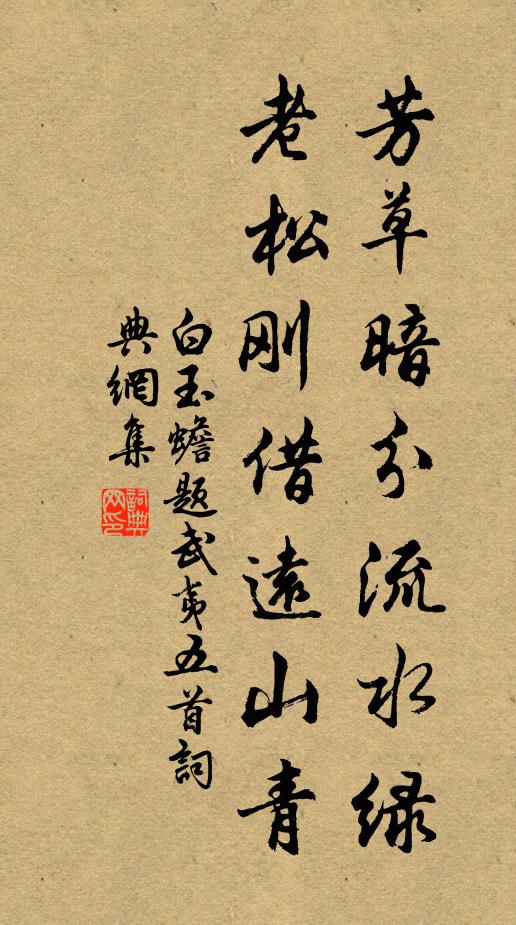 芳草暗分流水绿
老松刚借遠山青
白玉蟾題武夷五首詞
典網集
詞典網印